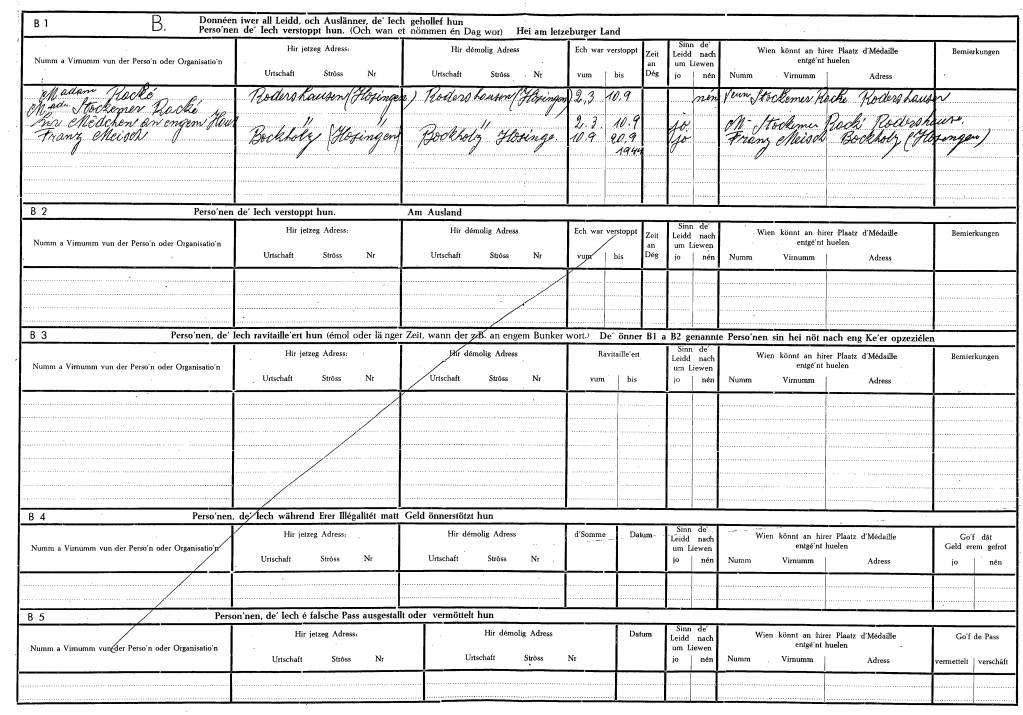 B 1 B. Donnéen iwer all Leidd, och Auslänner, de' Iech gehollef hun
Perso'nen de' Iech verstoppt hun. (Och wan et nömmen én Dag wor) Hei am letzeburger Land
Numm a Virnumm vun der Perso'n oder Organisatio'n
Hir jetzeg Adress:
Urtschaft Ströss Nr
Hir démolig Adress
Urtschaft Ströss Nr
Ech war verstoppt
vum bis
Zeit
an
Dég
Sinn de'
Leidd nach
um Liewen
jo nén
Wien könnt an hirer Plaatz d'Médaille
entgé'nt huelen
Numm Virnumm Adress
Bemierkungen
Madam Racké Rodershausen (Hosingen) Rodershausen (Hosingen) 2.3 10.9 nén Stockemer Racké Rodershausen
Stockemer Racké
Mëdchen an engem " " 2.3. 10.9 jo. Stockemer Racké
Franz Meisch Bockholz (Hosingen) Bockholz Hosinge. 10.9 20.9 jo Franz Meisch Bockholz (Hosingen)
1944
B 2 Perso'nen de' Iech verstoppt hun. Am Ausland
Numm a Vimumm vun der Perso'n oder Organisatio'n
Hir jetzeg Adress:
Urtschaft Ströss Nr
Hir démolig Adress
Urtschaft Ströss Nr
Ech war verstoppt
vum bis
Zeit
an
Dég
Sinn de'
Leidd nach
um Liewen
jo nén
Wien könnt an hirer Plaatz d'Médaille
entgé'nt huelen
Numm Virnumm Adress
Bemierkungen
B 3 Perso'nen, de' Iech ravitaille'ert hun (émol oder lä nger Zeit, wann der z.B. an engem Bunker wort.) De' önner B1 a B2 genannte Perso'nen sin hei nöt nach eng Ke'er opzeziélen
Numm a Vimumm vun der Perso'n oder Organisatio'n
Hir jetzeg Adress:
Urtschaft Ströss Nr
Hir démolig Adress
Urtschaft Ströss Nr
Ravitaille'ert
vum bis
Sinn de'
Leidd nach
um Liewen
jo nén
Wien könnt an hirer Plaatz d'Médaille
entgé'nt huelen
Numm Virnumm Adress
Bemierkungen
B 4 Perso'nen, de' Iech während Erer Illégalitét matt Geld önnerstötzt hun
Numm a Vimumm vun der Perso'n oder Organisatio'n
Hir jetzeg Adress:
Urtschaft Ströss Nr
Hir démolig Adress
Urtschaft Ströss Nr
d'Somme Datum
Sinn de'
Leidd nach
um Liewen
jo nén
Wien könnt an hirer Plaatz d'Médaille
entgé'nt huelen
Numm Virnumm Adress
Go'f dât
Geld erem gefrot
jo nén
B 5 Person'nen, de' Iech é falsche Pass ausgestallt oder vermöttelt hun
Numm a Vimumm vun der Perso'n oder Organisatio'n
Hir jetzeg Adress:
Urtschaft Ströss Nr
Hir démolig Adress
Urtschaft Ströss Nr
Datum
Sinn de'
Leidd nach
um Liewen
jo nén
Wien könnt an hirer Plaatz d'Médaille
entgé'nt huelen
Numm Virnumm Adress
Go'f de Pass
vermettelt verschâft